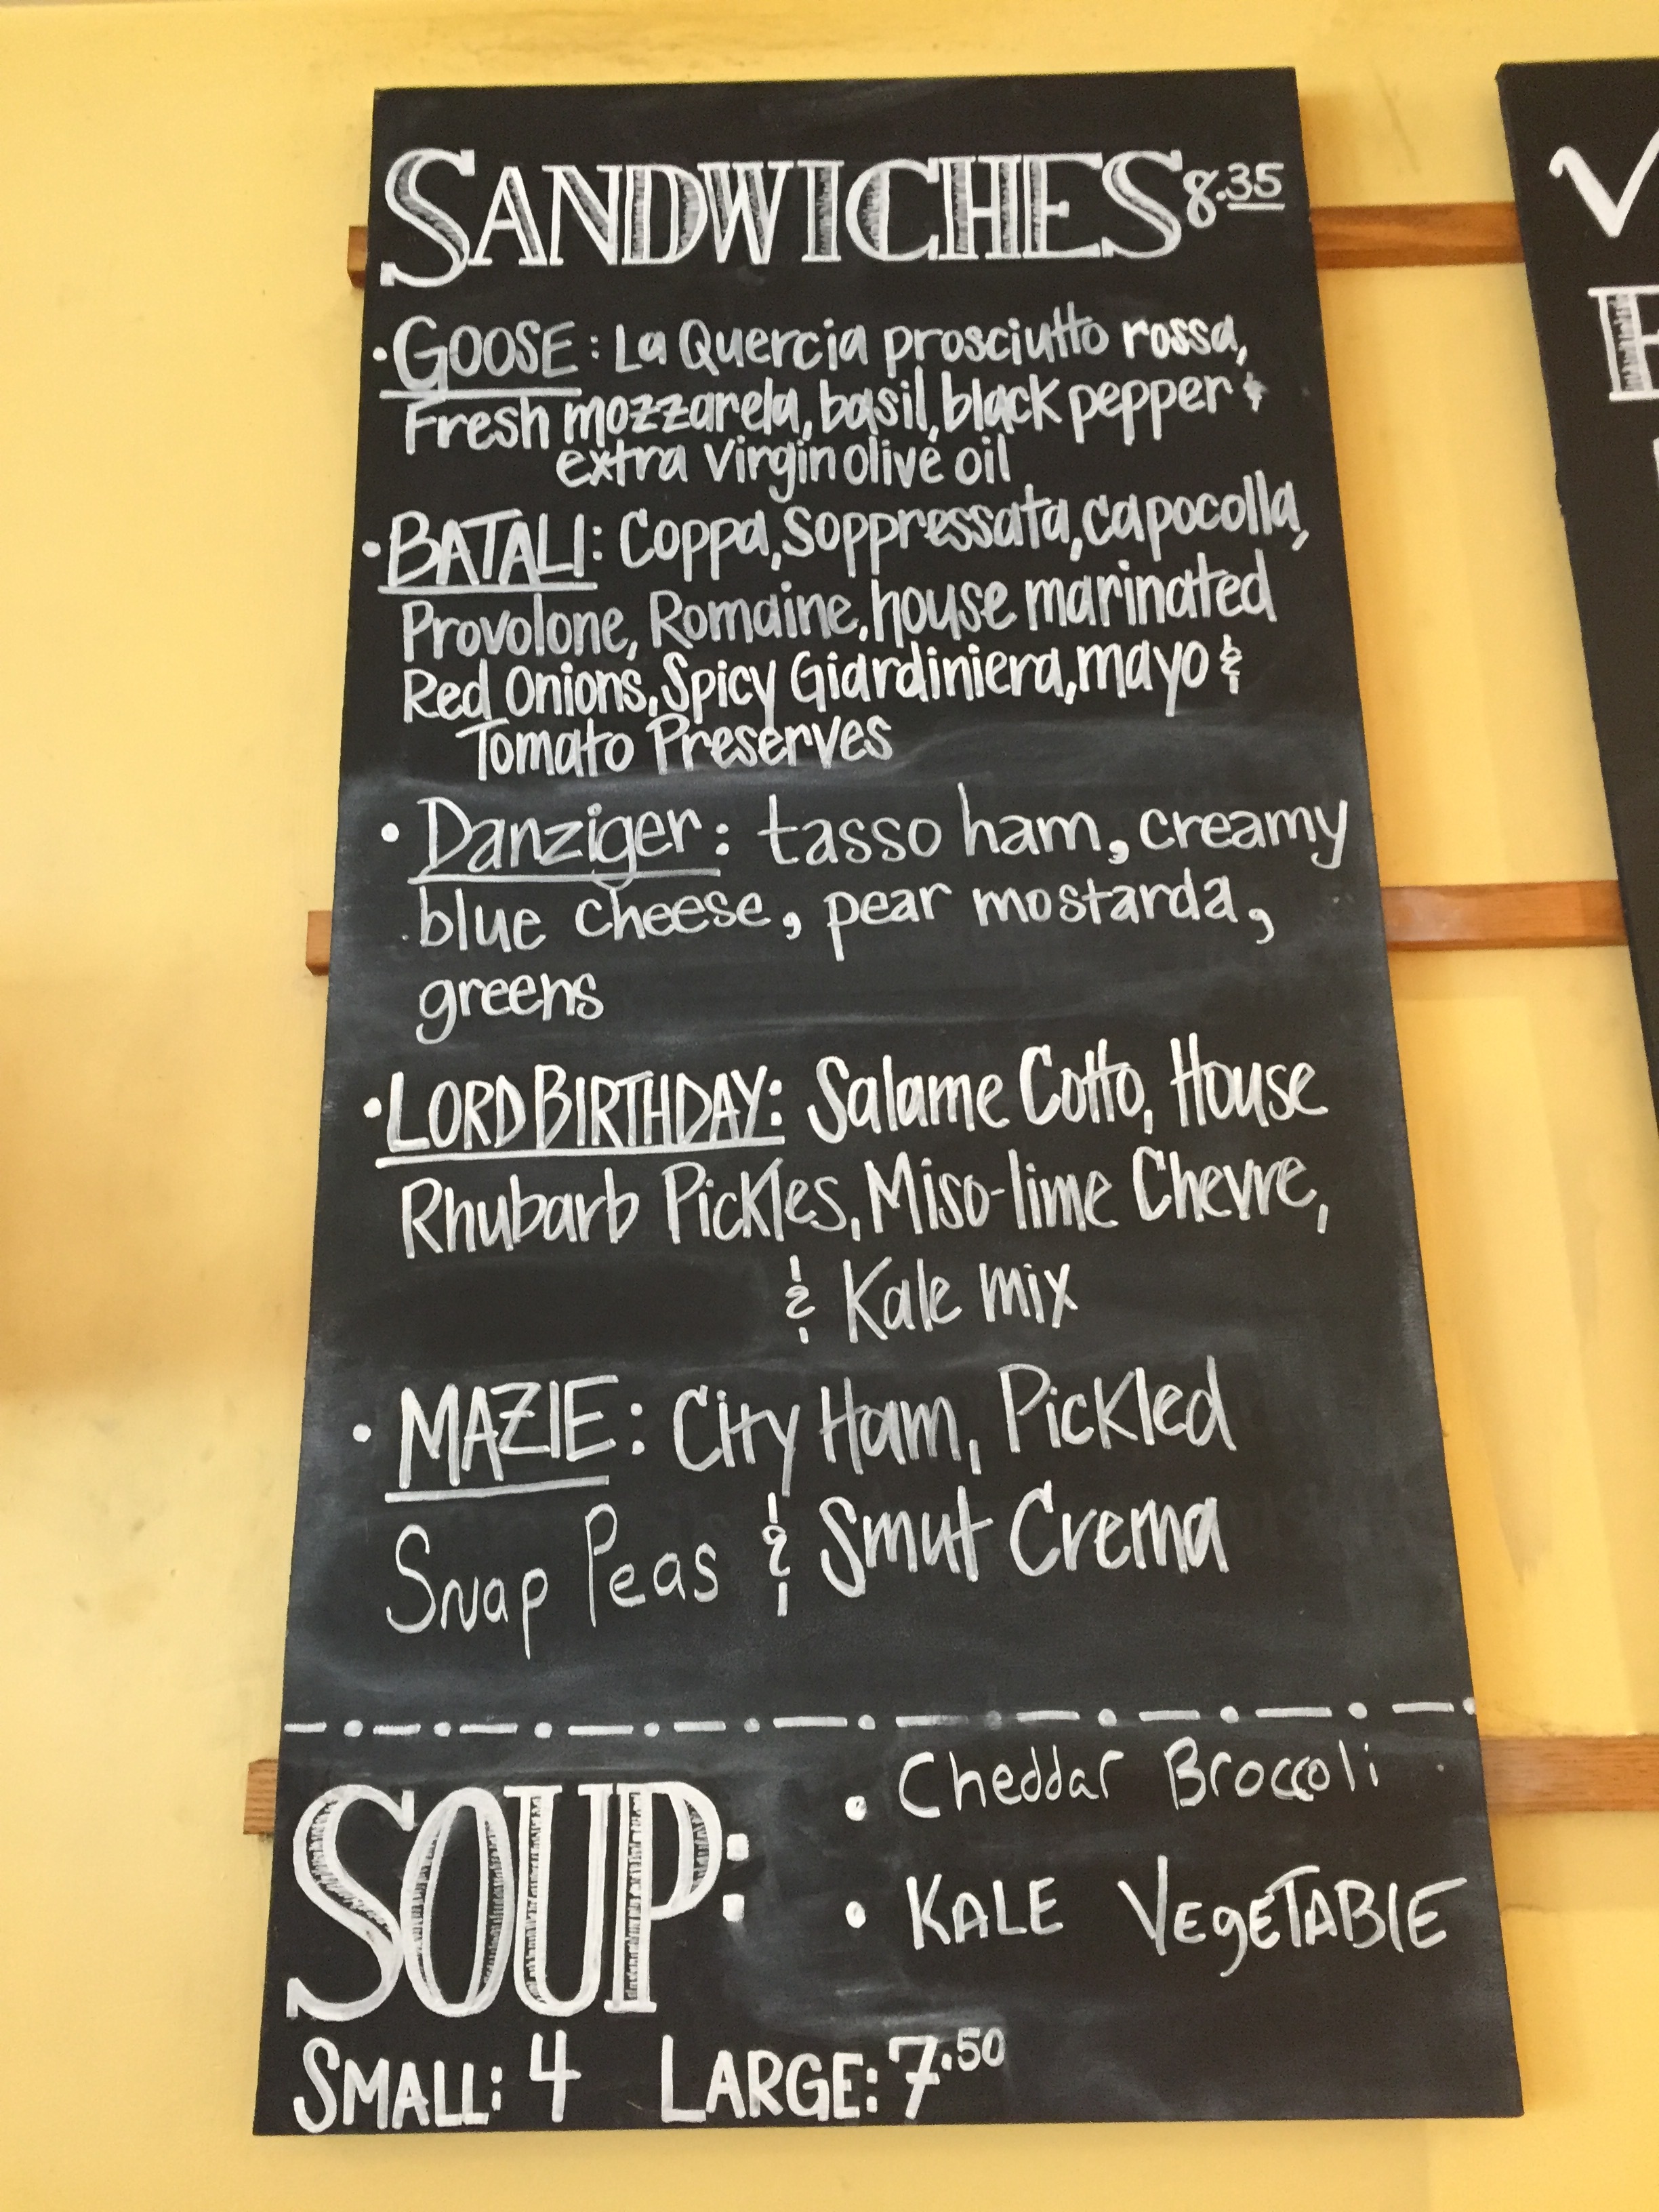 SANDWICHES 8.35
• GOOSE: La Quercia prosciutto rossa,
Fresh mozzarela, basil, black pepper &
extra virgin olive oil
• BATALI: Coppa, Soppressata, capocolla,
Provolone, Romaine, house marinated
Red Onions, Spicy Giardiniera, mayo &
Tomato Preserves
• Danziger: tasso ham, creamy
blue cheese, pear mostarda,
greens
• LORD BIRTHDAY: Salame Cotto, House
Rhubarb Pickles, Miso-lime Chevre,
& Kale mix
• MAZIE: City Ham, Pickled
Snap Peas & Smut Crema
SOUP:
• Cheddar Broccoli
• KALE VEgETABlE
SMALL: 4 LARGE: 7.50